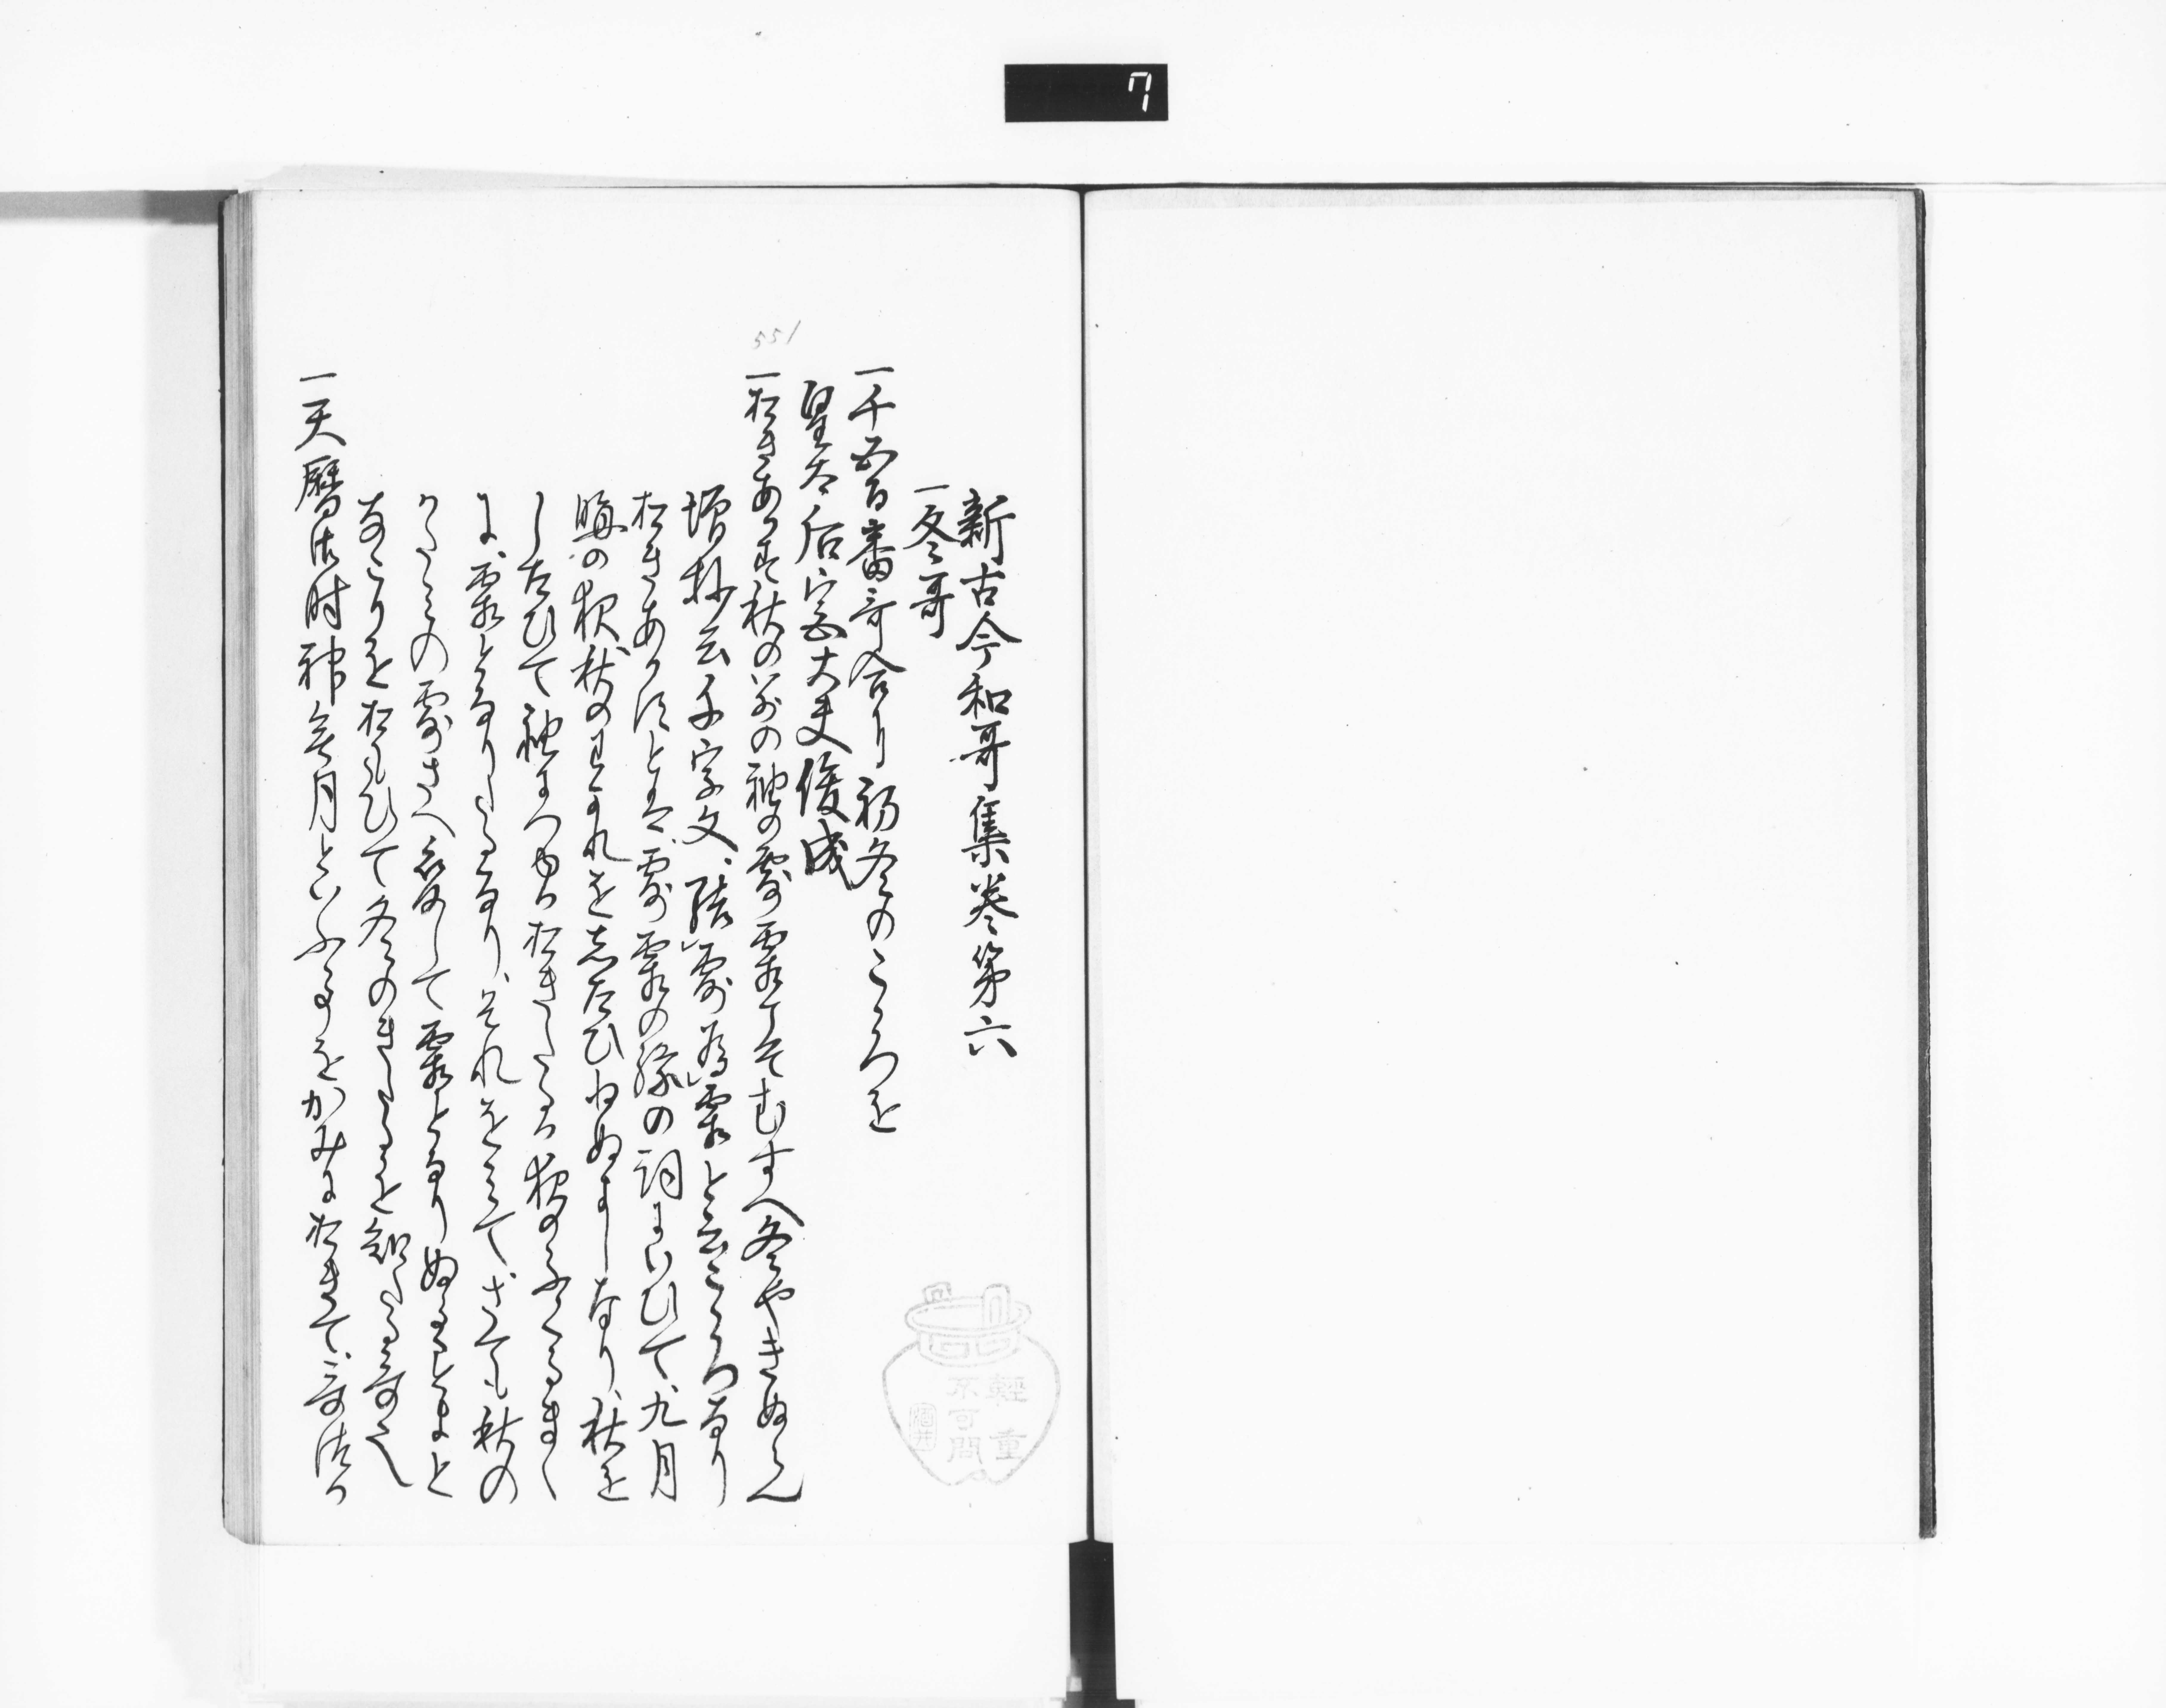 7
新古今和哥集巻第六
一冬哥
一千五百番哥合に初冬のこゝろを
皇太后宮大夫俊成
551
一おきあかす秋の別の袖の露霜こそむすへ冬やきぬらん
増抄云千字文、結露為霜と云こゝろなり
おきあかすとは、露霜の縁の詞にいひて、九月
晦の夜秋のわかれをしたひねぬよしなり、秋を
したひて袖に
に、霜となりたるなり、それをみて、さても秋の
かたみの露さへ変して霜となりぬるよと
なこりをおもひて冬のきたるを知たる哥也
一天暦御時神無月といふ事をかみにおきて、哥
輕重
不可問